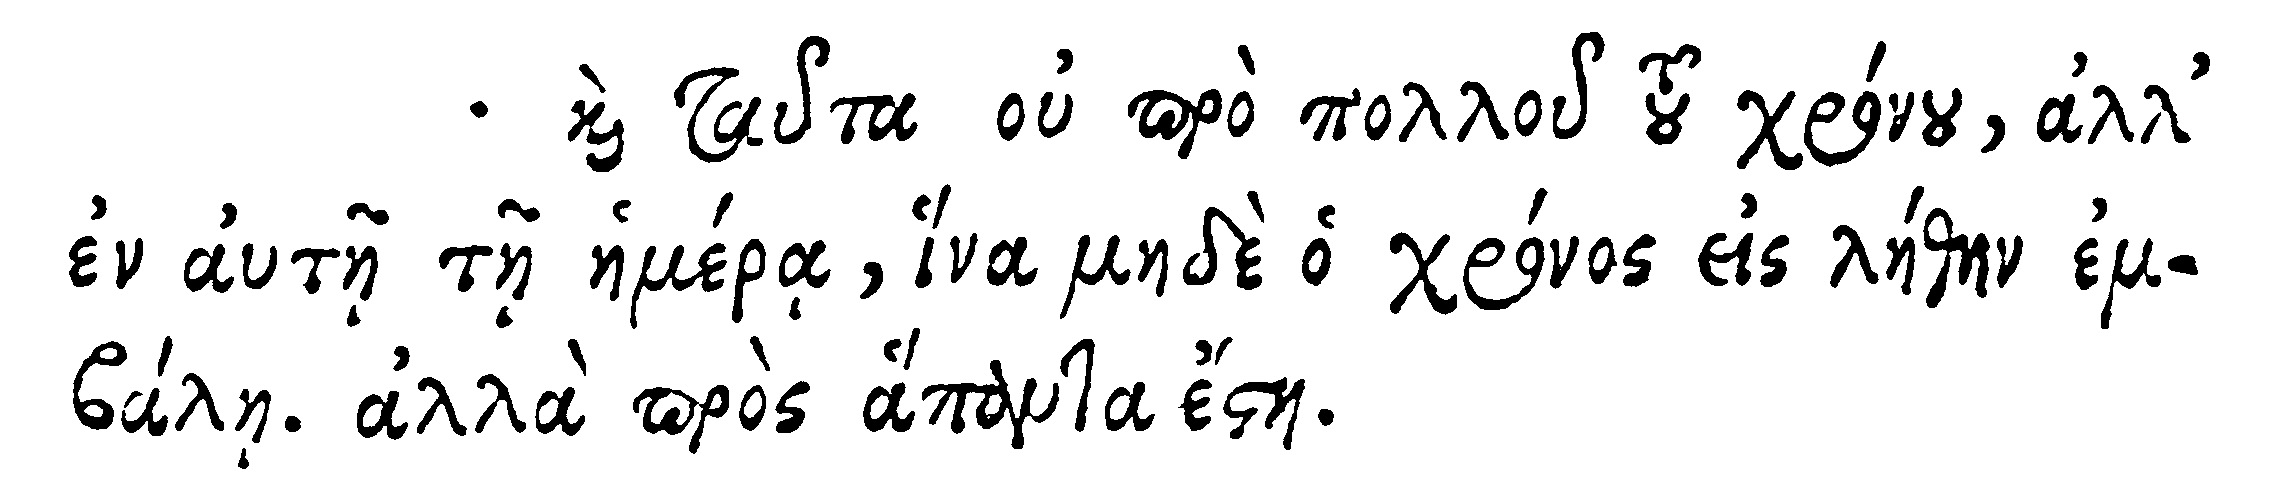 · καὶ ταῦτα οὐ πρὸ πολλοῦ τοῦ χρόνου, ἀλλ᾽
ἐν αὐτῇ τῇ ἡμέρᾳ, ἵνα μηδὲ ὁ χρόνος εἰς λήθην ἐμ-
βάλῃ. ἀλλὰ πρὸς ἅπαντα ἔστη.